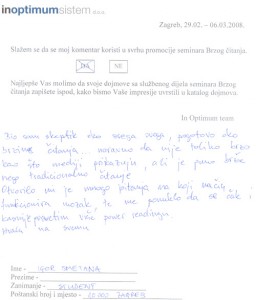 inoptimum sistem d.o.o.
Zagreb, 29.02. – 06.03.2008.
Slažem se da se moj komentar koristi u svrhu promocije seminara Brzog
čitanja.
DA
NE
Najljepše Vas molimo da svoje dojmove sa službenog dijela seminara Brzog
čitanja zapišete ispod, kako bismo Vaše impresije uvrstili u katalog dojmova.
In Optimum team
Bio sam skeptik oko svega ovoga, pogotovo oko
brzine čitanja. naravno da nije toliko brzo
kao što mediji prikazuju, ali je puno brže
nego tradicionalno čitanje
Otvorilo mi je mnogo pitanja na koji način
funkcionira mozak te me ponukalo da se čak i
kasnije posvetim više
Ime - IGOR SMETANA
Prezime -
Zanimanje - STUDENT
Poštanski broj i mjesto - 10 000 ZAGREB